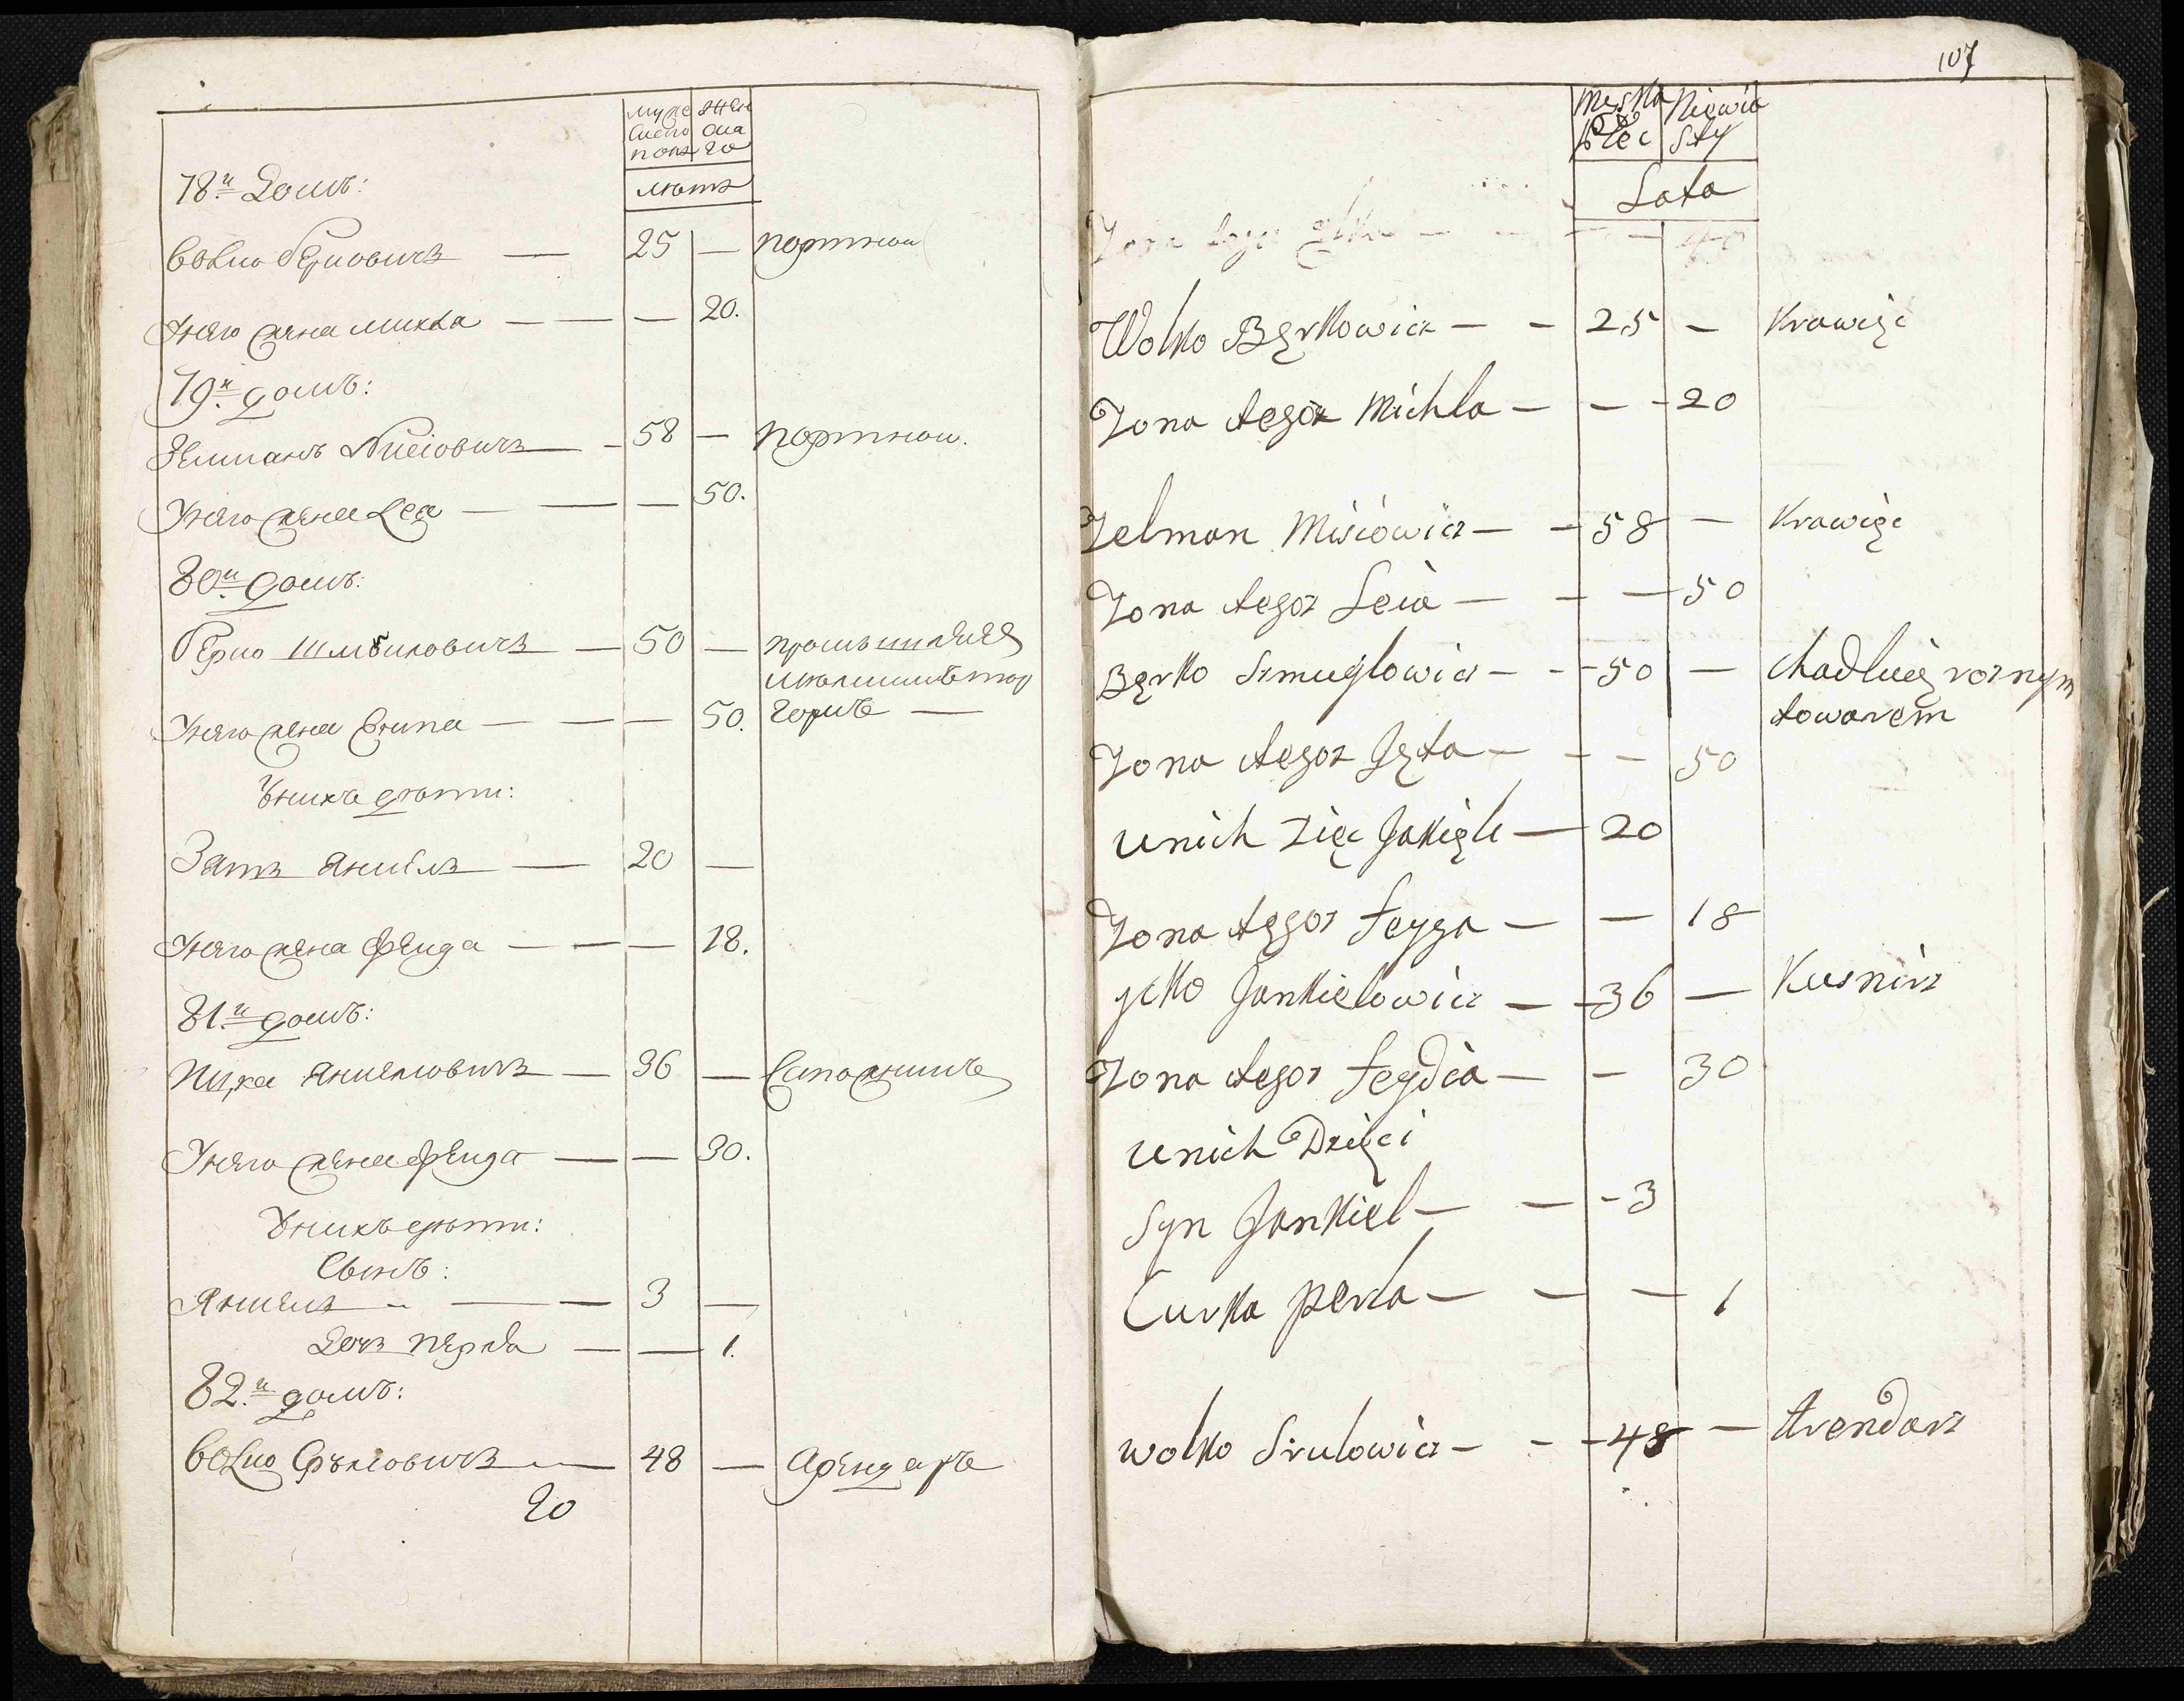 муже жен
скаго ска
пола го
лѣта
78й Домъ:
Волко Берковичъ — 25 — портной
У него жена михла — — — 20.
79й домъ:
Зелманъ Мисіовичъ — 58 — портной.
У него жена Лея — — — 50.
80й домъ:
Берко Шмуиловичъ — 50 — промышляет
мелкимъ тор
У него жена — — — 50. гомъ —
У нихъ дѣти:
Зять Янкель — 20 —
У него жена Фейга — — — 18.
81й домъ:
Ицка Янкелиовичъ — 36 — Сапожникъ
У него жена фейда — — 30.
У нихъ дѣти:
Сынъ:
Янкель — — 3 —
Дочь перла — — 1.
82й домъ:
Волко Срулиовичъ — 48 — Арендарь
20
107
Męska Niewia
Płeć sty
Lata
Żona tego — — — — 40
Wolko Bęrkowicz — — 25 — Krawięc
Żona tegoż Michla — — — 20
Zelman Misiówicz — — 58 — Krawięc
Żona tegoż Leia — — — 50
Bęrko Szmuylowicz — — 50 — chadluię roznym
towarem
Żona tegoż Jęta — — — 50
unich zięc Jakięl — 20
Żona tęgoż feyga — — 18
ycko Jankielowicz — — 36 — Kusnirz
Żona tegoż feydia — — 30
unich Dzięci
Syn Jankiel — — - 3
Curka perla — — — 1
wolko Srulowicz — — — 48 — Arendarz